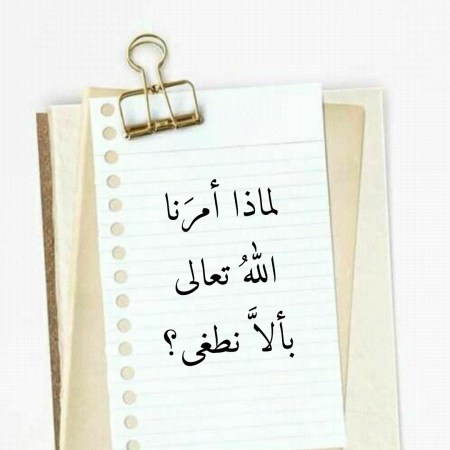 لماذا أمرَنا
اللهُ تعالى
بألاَّ نطغى؟